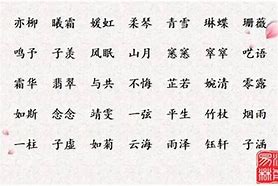 亦柳 曦霜 媛虹 柔琴 青雪 琳蝶 珊薇
鸣予 子羡 凤眠 山月 寒寒 窜窜 呓语
霜华 翡翠 与共 不悔 芷若 婉清 零露
如斯 念念 靖雯 一弦 平生 竹杖 烟雨
一柱 子虚 如菊 云海 雨泽 钰轩 子涵